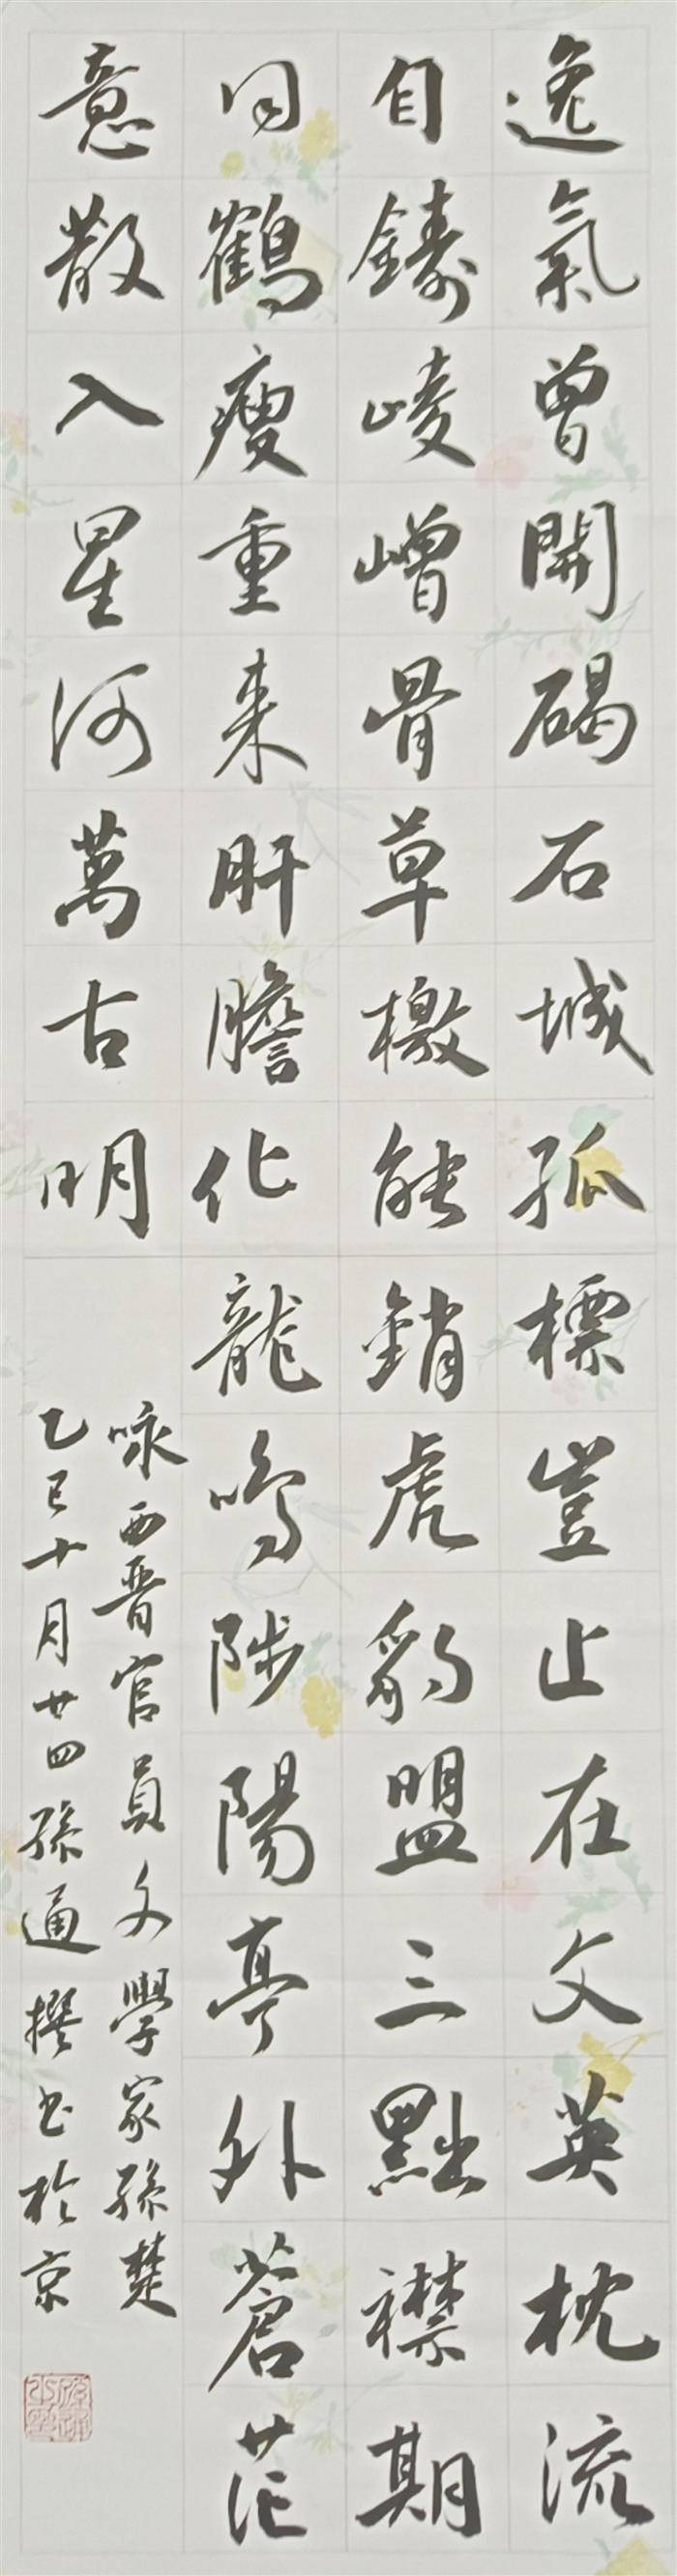 逸氣曾開碣石城孤標豈止在文英枕流
自鑄崚嶒骨草檄能銷虎豹盟三點襟期
同鶴瘦重来肝膽化龍鳴陟陽亭外蒼茫
意散入星河萬古明
咏西晋官員文學家孫楚
乙巳十月廿四孫通撰书於京